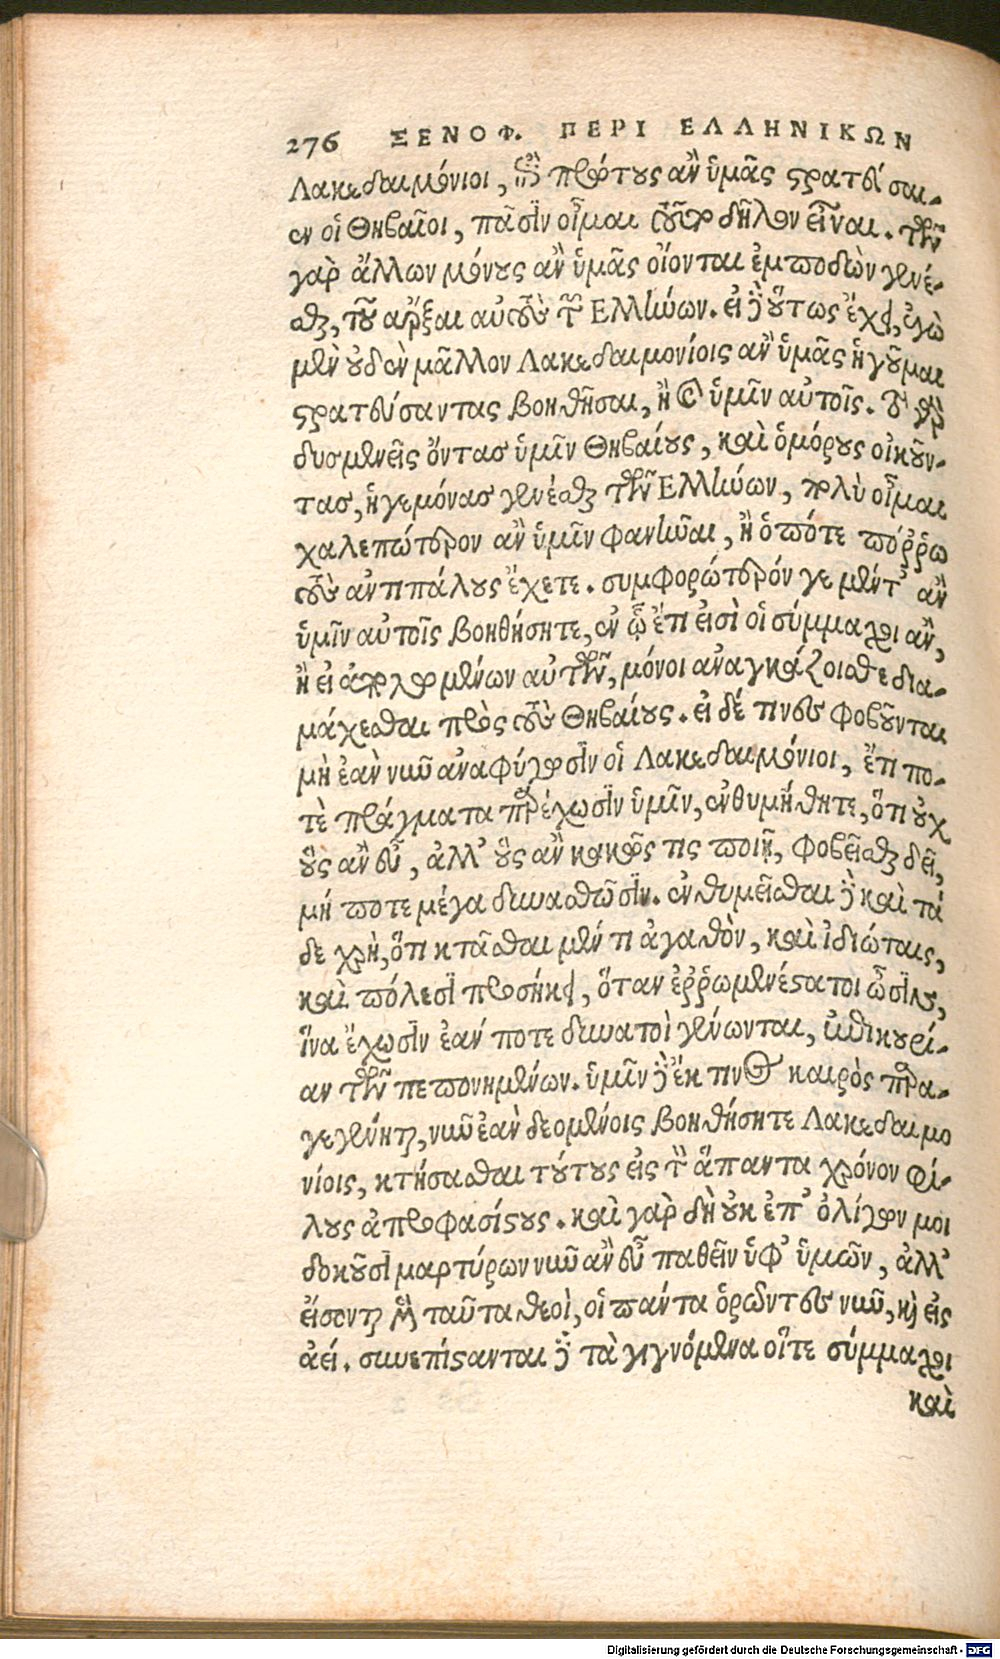 276 ΞΕΝΟΦ. ΠΕΡΙ ΕΛΛΗΝΙΚΩΝ
Λακεδαιμόνιοι, ὡς πρώτους ἂν ὑμᾶς στρατεύσαι-
εν οἱ Θηβαῖοι, πᾶσιν οἶμαι τοῦτο δῆλον εἶναι. τῶν
γὰρ ἄλλων μόνους ἂν ὑμᾶς οἴονται ἐμποδὼν γενέ-
σθαι, τοῦ ἄρξαι αὐτοὺς τῶν Ἑλλήνων. εἰ δ' οὕτως ἔχει, ἐγὼ
μὲν οὐδὲν μᾶλλον Λακεδαιμονίοις ἂν ὑμᾶς ἡγοῦμαι
στρατεύσαντας βοηθῆσαι, ἢ καὶ ὑμῖν αὐτοῖς. τὸ γὰρ
δυσμενεῖς ὄντας ὑμῖν Θηβαίους, καὶ ὁμόρους οἰκοῦν-
τας, ἡγεμόνας γενέσθαι τῶν Ἑλλήνων, πολὺ οἶμαι
χαλεπώτερον ἂν ὑμῖν φανῆναι, ἢ ὁπότε πόῤῥω
τοὺς ἀντιπάλους ἔχετε. συμφορώτερόν γε μέντ' ἂν
ὑμῖν αὐτοῖς βοηθήσητε, ἐν ᾧ ἔτι εἰσὶ οἱ σύμμαχοι ἂν,
ἢ εἰ ἀπολομένων αὐτῶν, μόνοι ἀναγκάζοισθε δια-
μάχεσθαι πρὸς τοὺς Θηβαίους. εἰ δέ τινες φοβοῦνται
μὴ ἐὰν νῦν ἀναφύγωσιν οἱ Λακεδαιμόνιοι, ἔτι πο-
τὲ πράγματα παρέχωσιν ὑμῖν, ἐνθυμήθητε, ὅτι οὐχ
οὓς ἂν εὖ, ἀλλ' οὓς ἂν κακῶς τις ποιῇ, φοβεῖσθαι δεῖ,
μή ποτε μέγα δυνασθῶσιν. ἐνθυμεῖσθαι δὲ καὶ τά
δε χρὴ, ὅτι κτᾶσθαι μέν τι ἀγαθὸν, καὶ ἰδιώταις,
καὶ πόλεσι προσήκει, ὅταν ἐῤῥωμενέστατοι ὦσιν,
ἵνα ἔχωσιν ἐάν ποτε δυνατοὶ γένωνται, ἐπικουρί-
αν τῶν πεπονημένων. ὑμῖν δὲ ἔκ τινος καιρὸς παρα-
γεγένηται, νῦν ἐὰν δεομένοις βοηθήσητε Λακεδαιμο
νίοις, κτήσασθαι τούτους εἰς τὸν ἅπαντα χρόνον φί-
λους ἀπροφασίστους. καὶ γὰρ δὴ οὐκ ἐπ' ὀλίγων μοι
δοκοῦσι μαρτύρων νῦν ἂν εὖ παθεῖν ὑφ' ὑμῶν, ἀλλ'
εἴσονται μὲν ταῦτα θεοὶ, οἱ πάντα ὁρῶντες νῦν, καὶ εἰς
ἀεί. συνεπίστανται δὲ τὰ γιγνόμενα οἵτε σύμμαχοι
καὶ
Digitalisierung gefördert durch die Deutsche Forschungsgemeinschaft - DFG